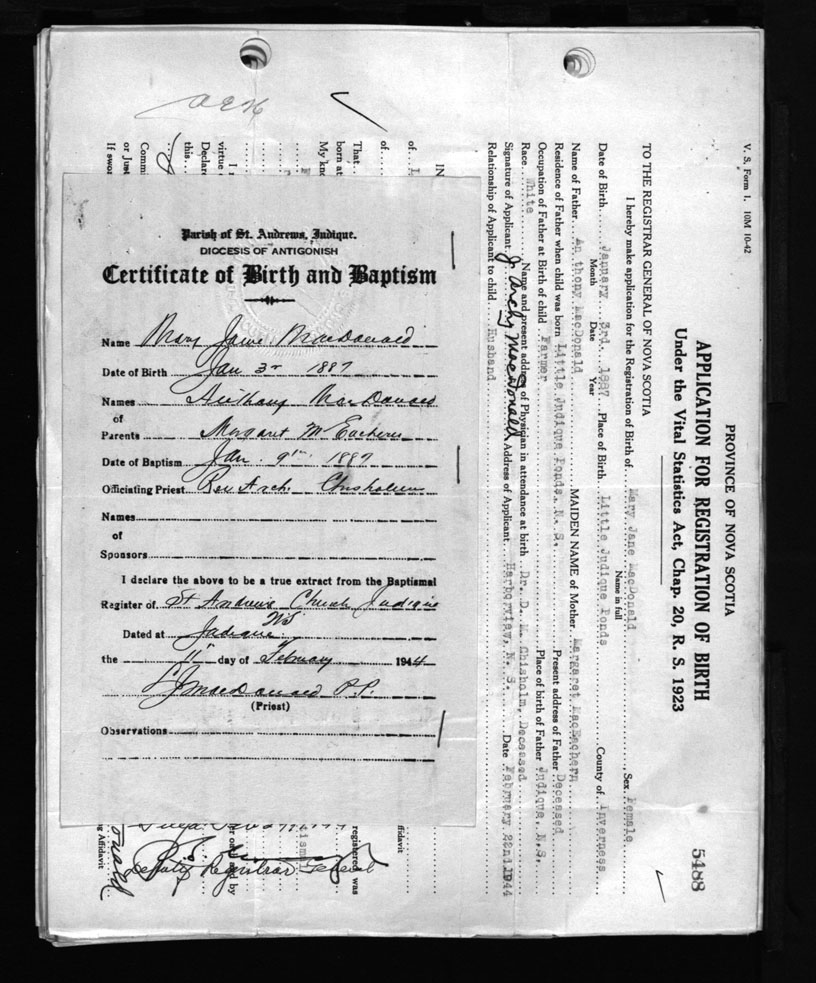 V. S. Form I. 10M 10-42
PROVINCE OF NOVA SCOTIA
APPLICATION FOR REGISTRATION OF BIRTH
Under the Vital Statistics Act, Chap. 20, R. S. 1923
5488
TO THE REGISTRAR GENERAL OF NOVA SCOTIA
I hereby make application for the Registration of Birth of Mary Jane MacDonald, Sex Female
Name in full
Date of Birth January 3rd. 1887 Place of Birth Little Judique Ponds County of Inverness
Month Date Year
Name of Father Anthony MacDonald MAIDEN NAME of Mother Margaret MacEachern
Residence of Father when child was born Little Judique Ponds, N. S. Present address of Father Deceased
Occupation of Father at Birth of child Farmer Place of birth of Father Judique, N.S.
Race White Name and present address of Physician in attendance at birth Dr. D. M. Chisholm, Deceased
Signature of Applicant J Archy MacDonald Address of Applicant Harborview, N. S. Date February 22nd 1944
Relationship of Applicant to child Husband
IN
of
of
That
born at
My kn
I
virtue
Declar
this
Commi
or Just
If swor
ffidavit
registered was
er one and by
Deputy Registrar General
ng Affidavit
Parish of St. Andrews, Judique.
DIOCESIS OF ANTIGONISH
Certificate of Birth and Baptism
Name Mary Jane MacDonald
Date of Birth Jan 3rd 1887
Names Anthony MacDonald
of
Parents Margaret McEachern
Date of Baptism Jan. 9th 1887
Officiating Priest Rev Arch Chisholm
Names
of
Sponsors
I declare the above to be a true extract from the Baptismal
Register of St Andrews Church Judique
Dated at Judique NS
the 11th day of February 1944
(Priest)
Observations